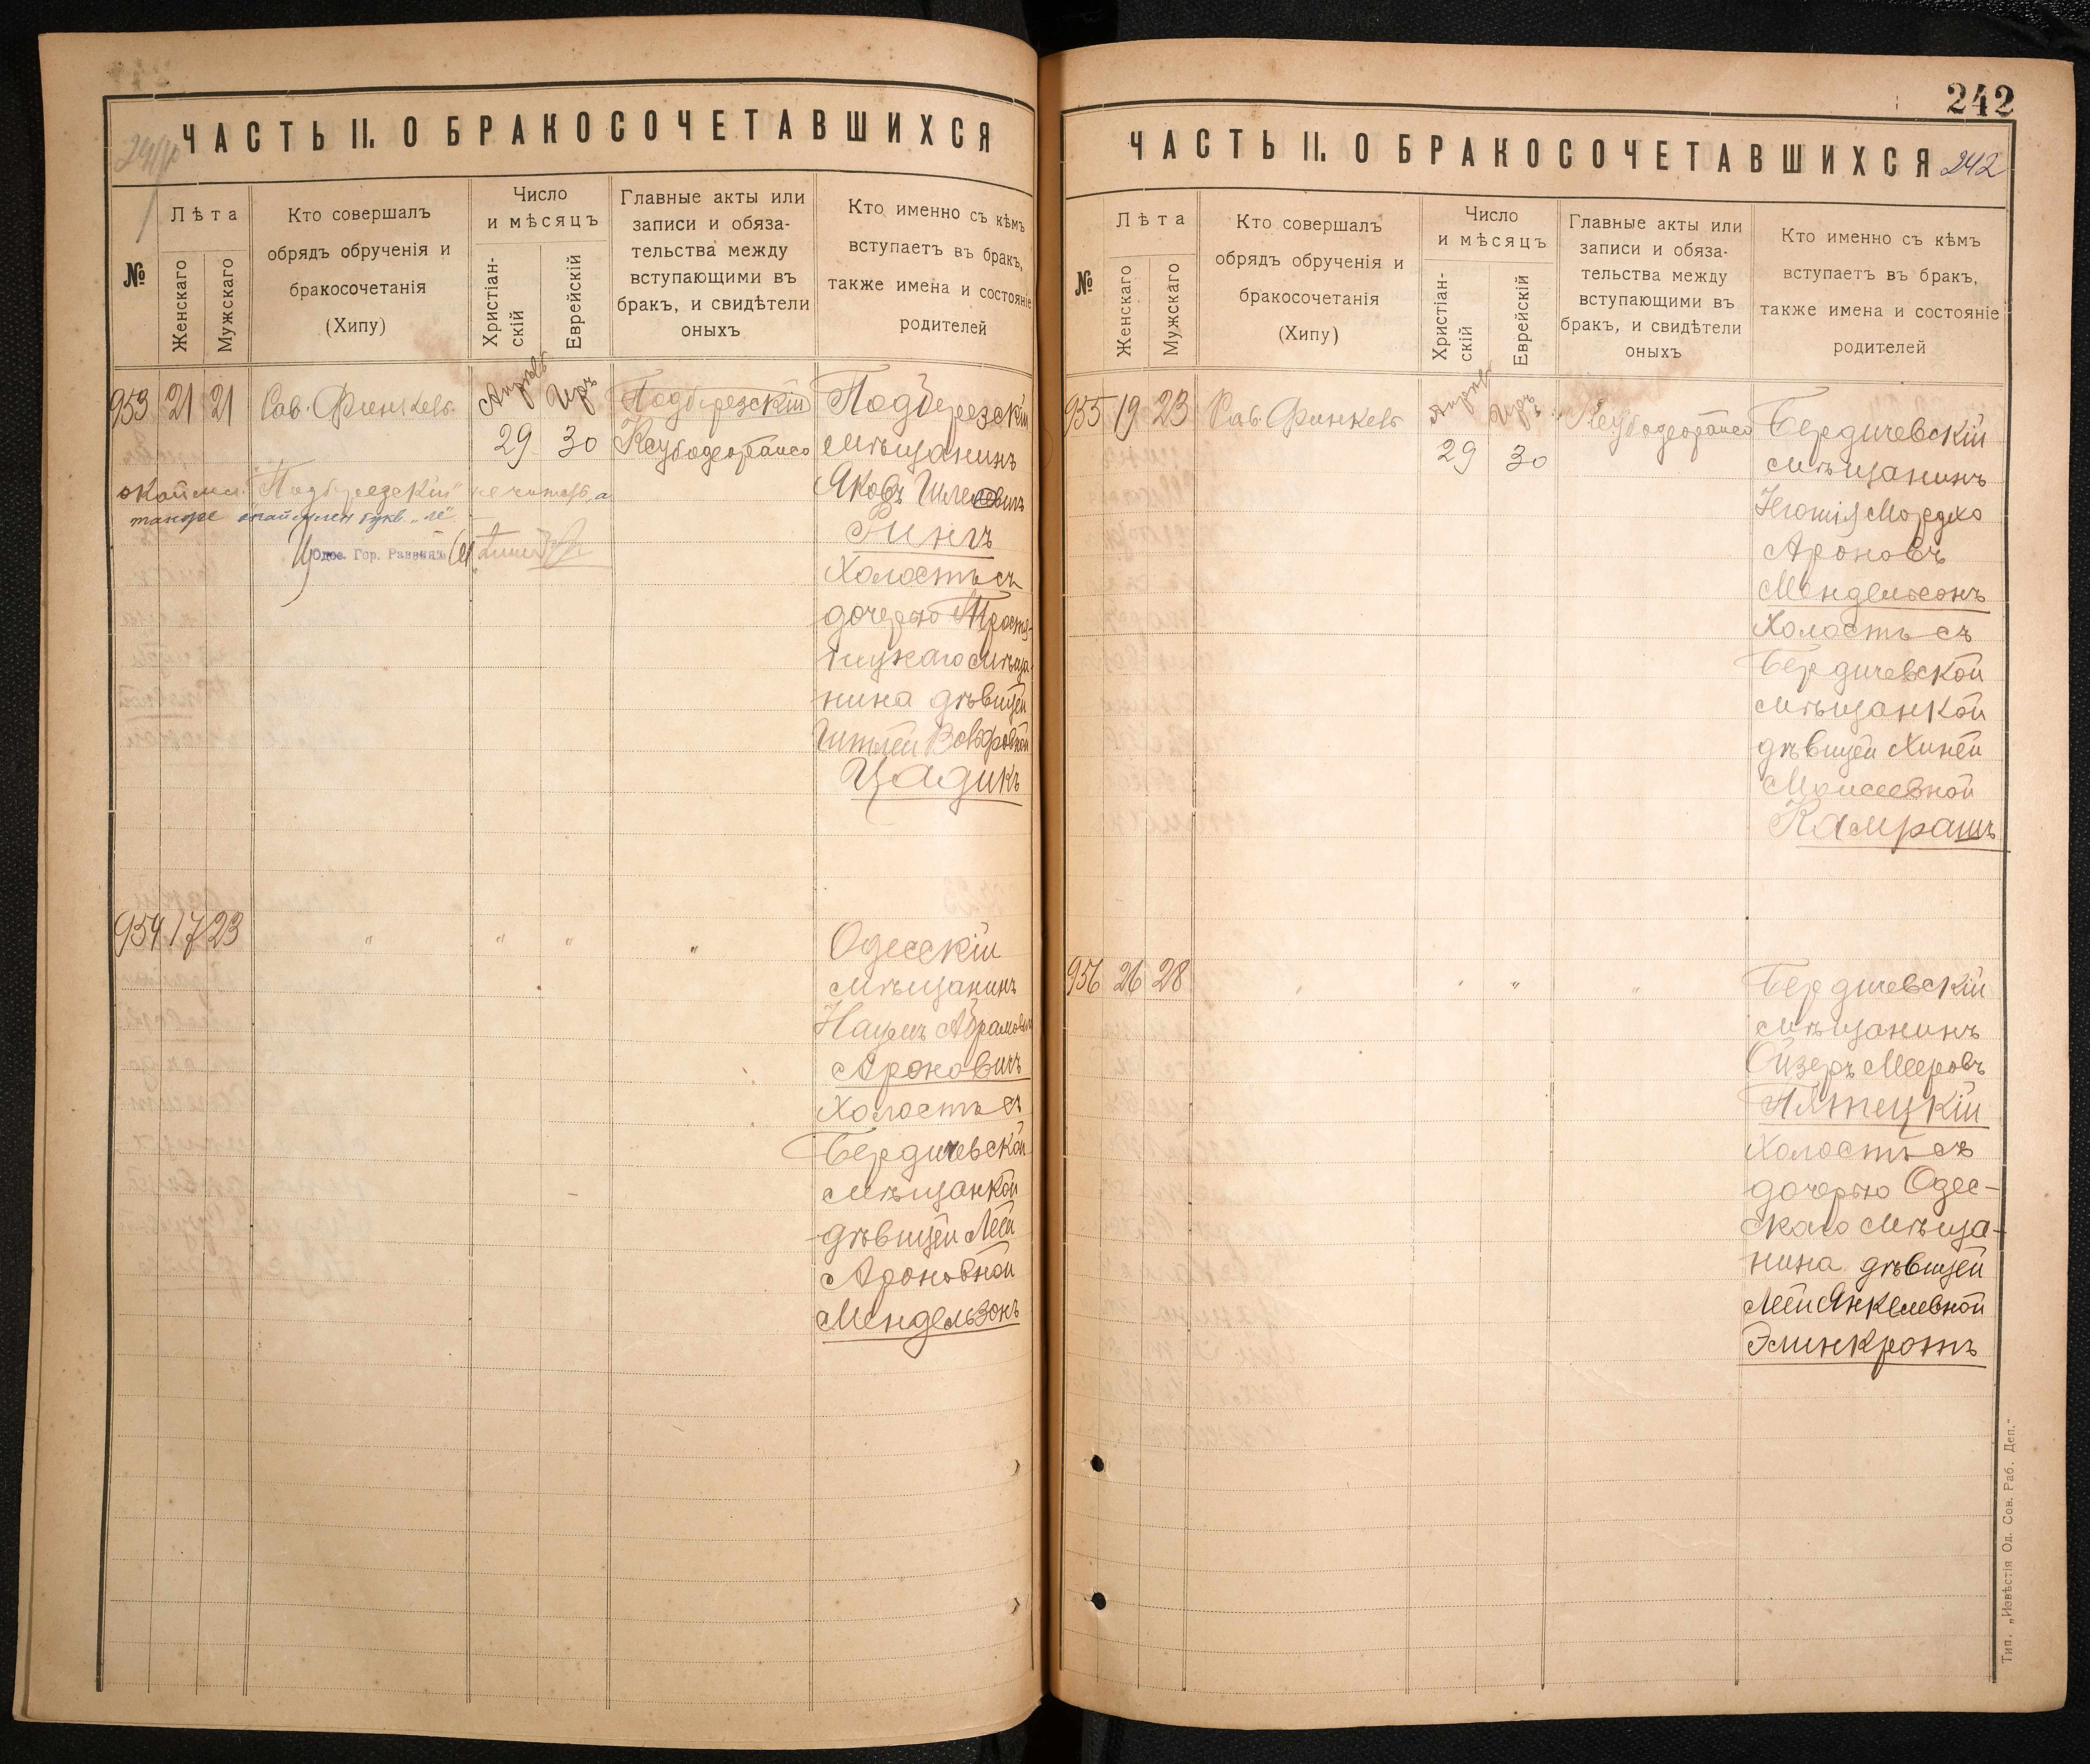 ЧАСТЬ II. О БРАКОСОЧЕТАВШИХСЯ
№
Лѣта
Женскаго
Мужскаго
Кто совершалъ
обрядъ обрученія и
бракосочетанія
(Хипу)
Число
и мѣсяцъ
Христіан-
скій
Еврейскій
Главные акты или
записи и обяза-
тельства между
вступающими въ
бракъ, и свидѣтели
оныхъ
Кто именно съ кѣмъ
вступаетъ въ бракъ,
также имена и состояніе
родителей
953 21 21 Рав. Финкель
Апрѣль Иръ
29 30
Подберезскій
Подберезскій
мѣщанинъ
Яковъ
Рингъ
Холостъ съ
дочерью
мѣща-
нина дѣвицей
Вольфовной
Цадикъ
"Подберезскій" не читать, а
также окаймлен букв. „ле"
Одес. Гор. Раввинъ
954 17 23 " " " "
Одесскій
мѣщанинъ
Абрамовъ
Ароновичъ
Холостъ съ
Бердичевской
мѣщанкой
дѣвицей Леей
Ароновной
Мендельзонъ
242
ЧАСТЬ II. О БРАКОСОЧЕТАВШИХСЯ 242
№
Лѣта
Женскаго
Мужскаго
Кто совершалъ
обрядъ обрученія и
бракосочетанія
(Хипу)
Число
и мѣсяцъ
Христіан-
скій
Еврейскій
Главные акты или
записи и обяза-
тельства между
вступающими въ
бракъ, и свидѣтели
оныхъ
Кто именно съ кѣмъ
вступаетъ въ бракъ,
также имена и состояніе
родителей
955 19 23 Рав. Финкель
Апрѣль Иръ
29 30
Бердичевскій
мѣщанинъ
Мордко
Ароновъ
Мендельсонъ
Холостъ съ
Бердичевской
мѣщанкой
дѣвицей Хиней
Моисеевной
Камрашъ
956 26 28 " " " "
Бердичевскій
мѣщанинъ
Ойзеръ Мееровъ
Пятецкій
Холостъ съ
дочерью Одес-
скаго мѣща-
нина дѣвицей
Леей Янкелевной
Элинкротъ
Тип. „Извѣстія Од. Сов. Раб. Деп."